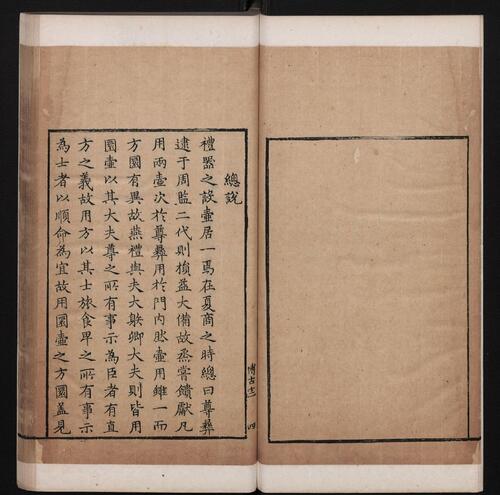 總說
禮器之設壺居一焉在夏商之時總曰尊彝
逮于周監二代則損益大備故烝嘗饋獻凡
用兩壺次於尊彝用於門內然壺用雖一而
方圜有異故燕禮與夫大射卿大夫則皆用
圜壺以其大夫尊之所有事示為臣者有直
方之義故用方以其士旅食卑之所有事示
為士者以順命為宜故用圜壺之方圜蓋見
博古十二 四